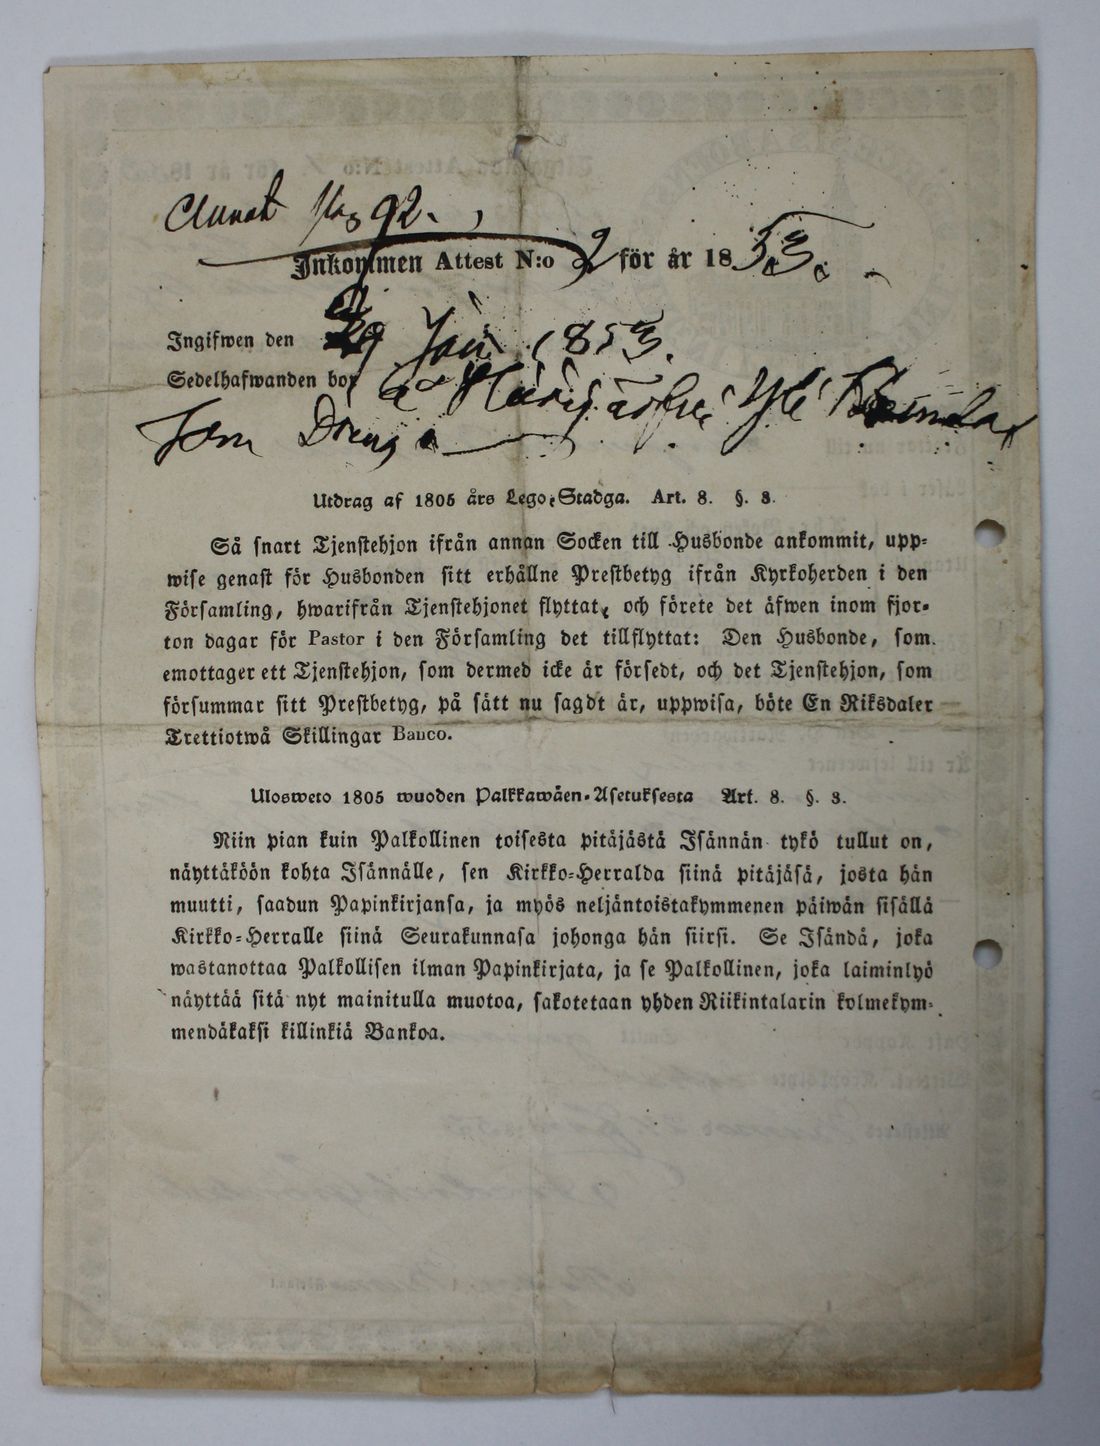 92.
Inkommen Attest N:o 2 för år 1853.
Ingifwen den 29 Jan 1853.
Sedelhafwanden bor å Ylé
Som Dräng
Utdrag af 1805 års Lego-Stadga. Art. 8. §. 3.
Så snart Tjenstehjon ifrån annan Socken till Husbonde ankommit, upp-
wise genast för Husbonden sitt erhållne Prestbetyg ifrån Kyrkoherden i den
Församling, hwarifrån Tjenstehjonet flyttat, och förete det äfwen inom fjor-
ton dagar för Pastor i den Församling det tillflyttat: Den Husbonde, som
emottager ett Tjenstehjon, som dermed icke är försedt, och det Tjenstehjon, som
försummar sitt Prestbetyg, på sätt nu sagdt är, uppwisa, böte En Riksdaler
Trettiotwå Skillingar Banco.
Ulosweto 1805 wuoden Palkkawäen-Asetuksesta Art. 8. §. 3.
Niin pian kuin Palkollinen toisesta pitäjästä Isännän tykö tullut on,
näyttäköön kohta Isännälle, sen Kirkko-Herralda siinä pitäjäsä, josta hän
muutti, saadun Papinkirjansa, ja myös neljäntoistakymmenen päiwän sisällä
Kirkko-Herralle siinä Seurakunnasa johonga hän siirsi. Se Isändä, joka
wastanottaa Palkollisen ilman Papinkirjata, ja se Palkollinen, joka laiminlyö
näyttää sitä nyt mainitulla muotoa, sakotetaan yhden Riikintalarin kolmekym-
mendäkaksi killinkiä Bankoa.